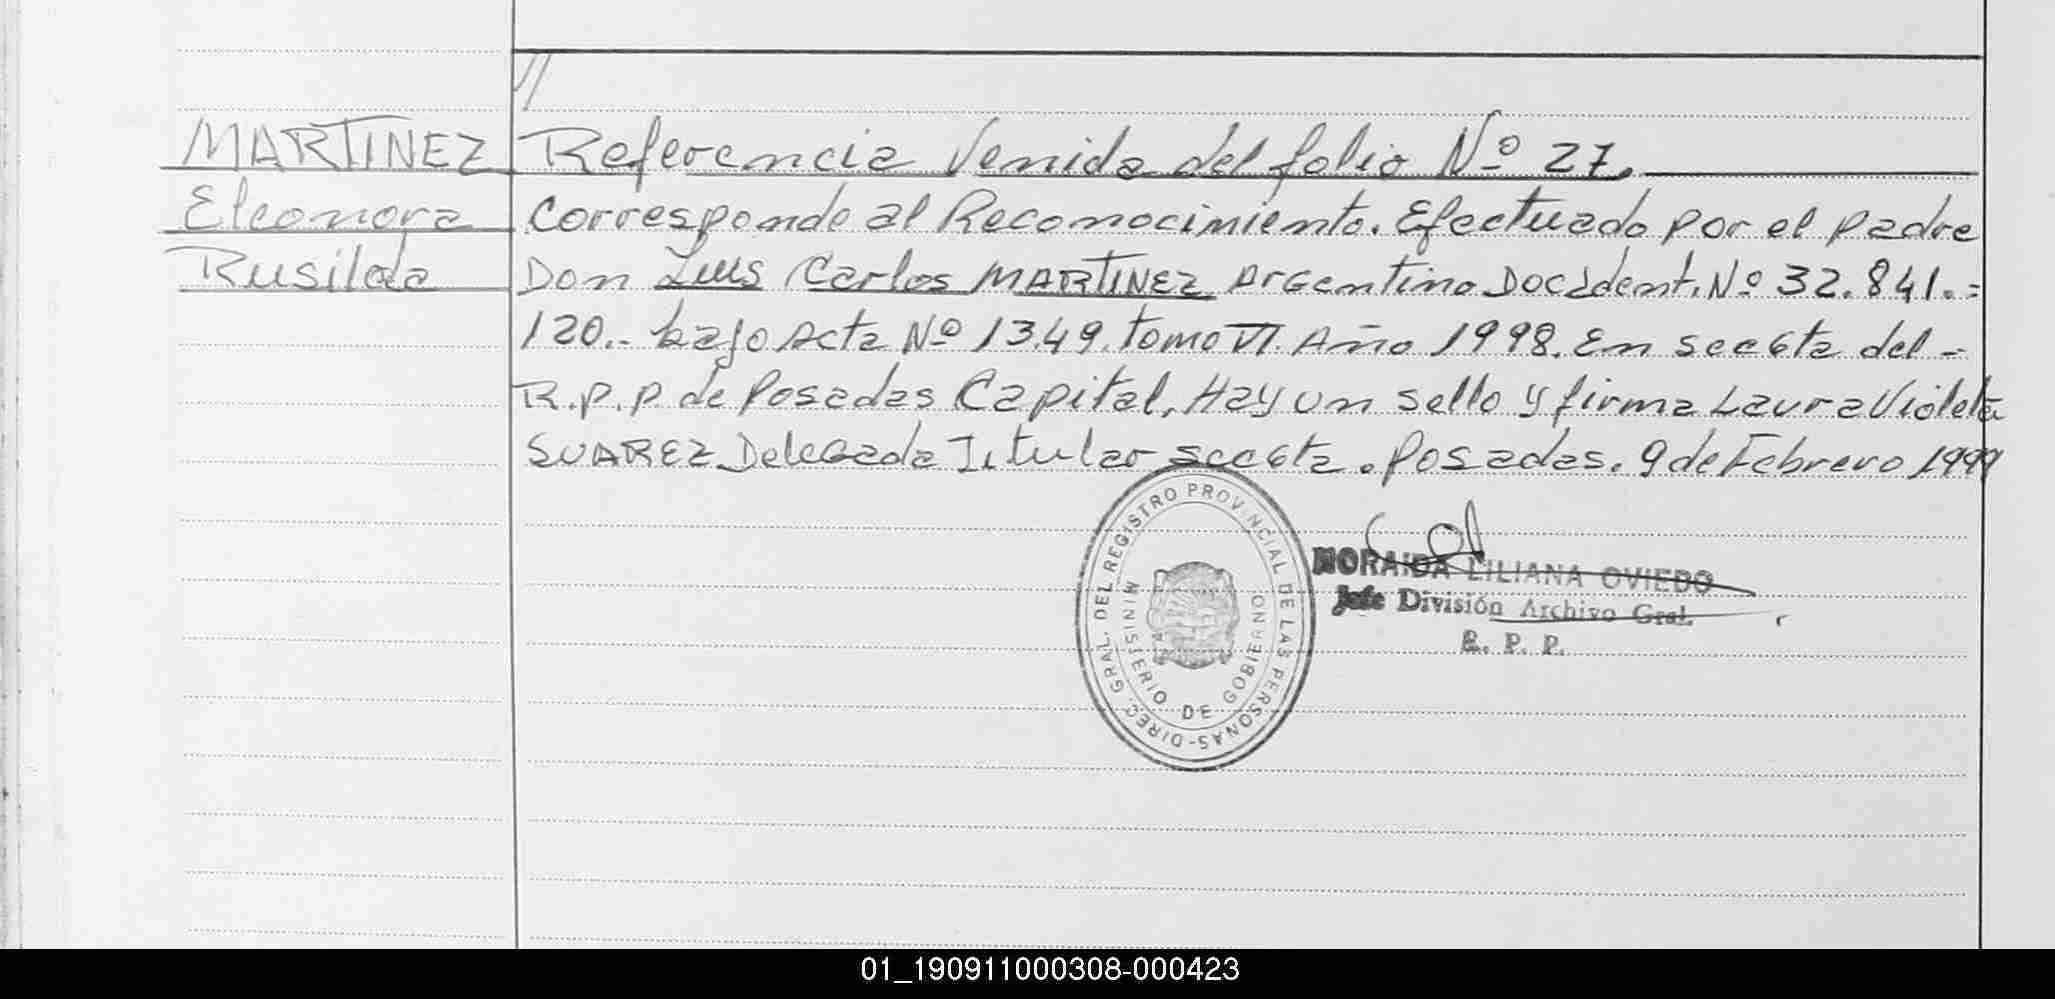 //
MARTINEZ Referencia Venida del folio Nº 27.
Eleonora Corresponde al Reconocimiento. Efectuado por el padre
Rusilda Don Luis Carlos MARTINEZ Argentino Doc Ident. Nº 32.841.=
120.- bajo Acta Nº 1349. tomo VI. Año 1998. En secc 6ta del -
R.P.P de Posadas Capital, Hay un sello y firma Laura Violeta
SUAREZ Delegada Titular secc 6ta. Posadas. 9 de Febrero 1999
DIREC. GRAL. DEL REGISTRO PROVINCIAL DE LAS PERSONAS-
MINISTERIO DE GOBIERNO
NORAIDA LILIANA OVIEDO
Jefe División Archivo Gral.
R. P. P.
01_190911000308-000423